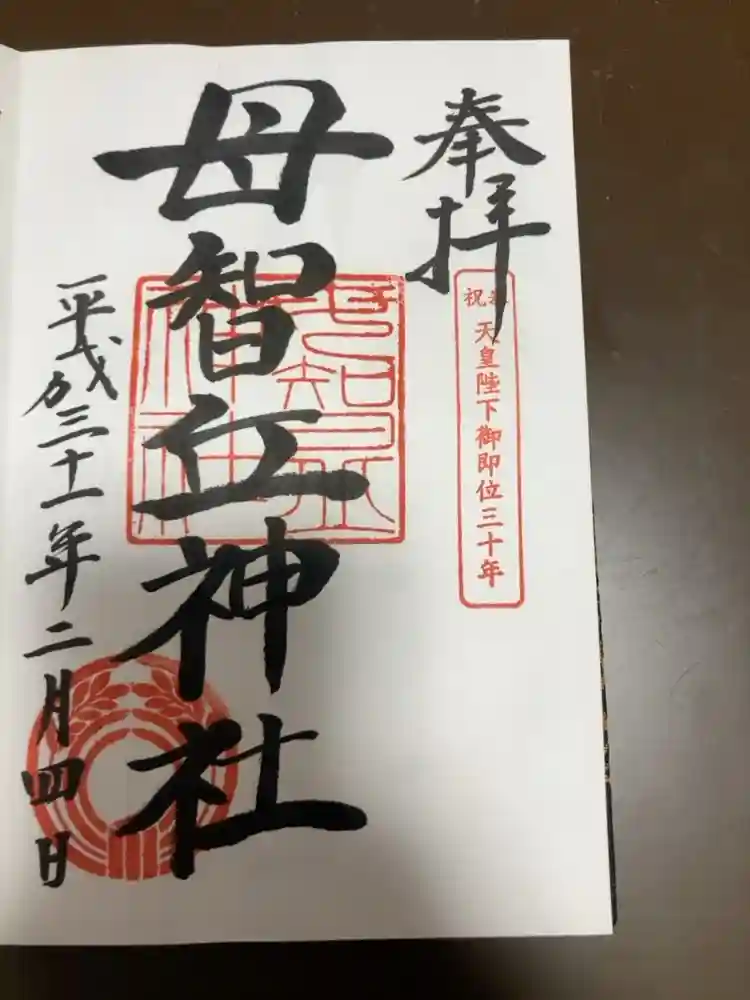 奉拝
奉祝
天皇陛下御即位三十年
母智丘神社
母智丘
神社
平成三十一年二月四日